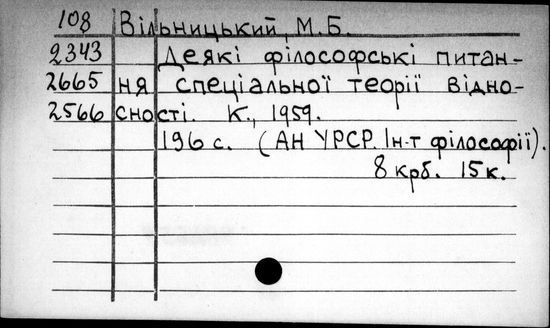 108 Вільницький, М.Б.
2343 Деякі філософські питан-
2665 ня спеціальної теорії відно-
2566 сності. К., 1959.
196 с. (АН УРСР. Ін-т філософії).
8 крб. 15 к.